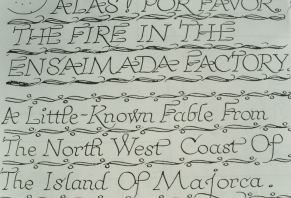 ALAS! POR FAVOR.
THE FIRE IN THE
ENSAIMADA FACTORY.
A Little-Known Fable From
The North West Coast Of
The Island Of Majorca.